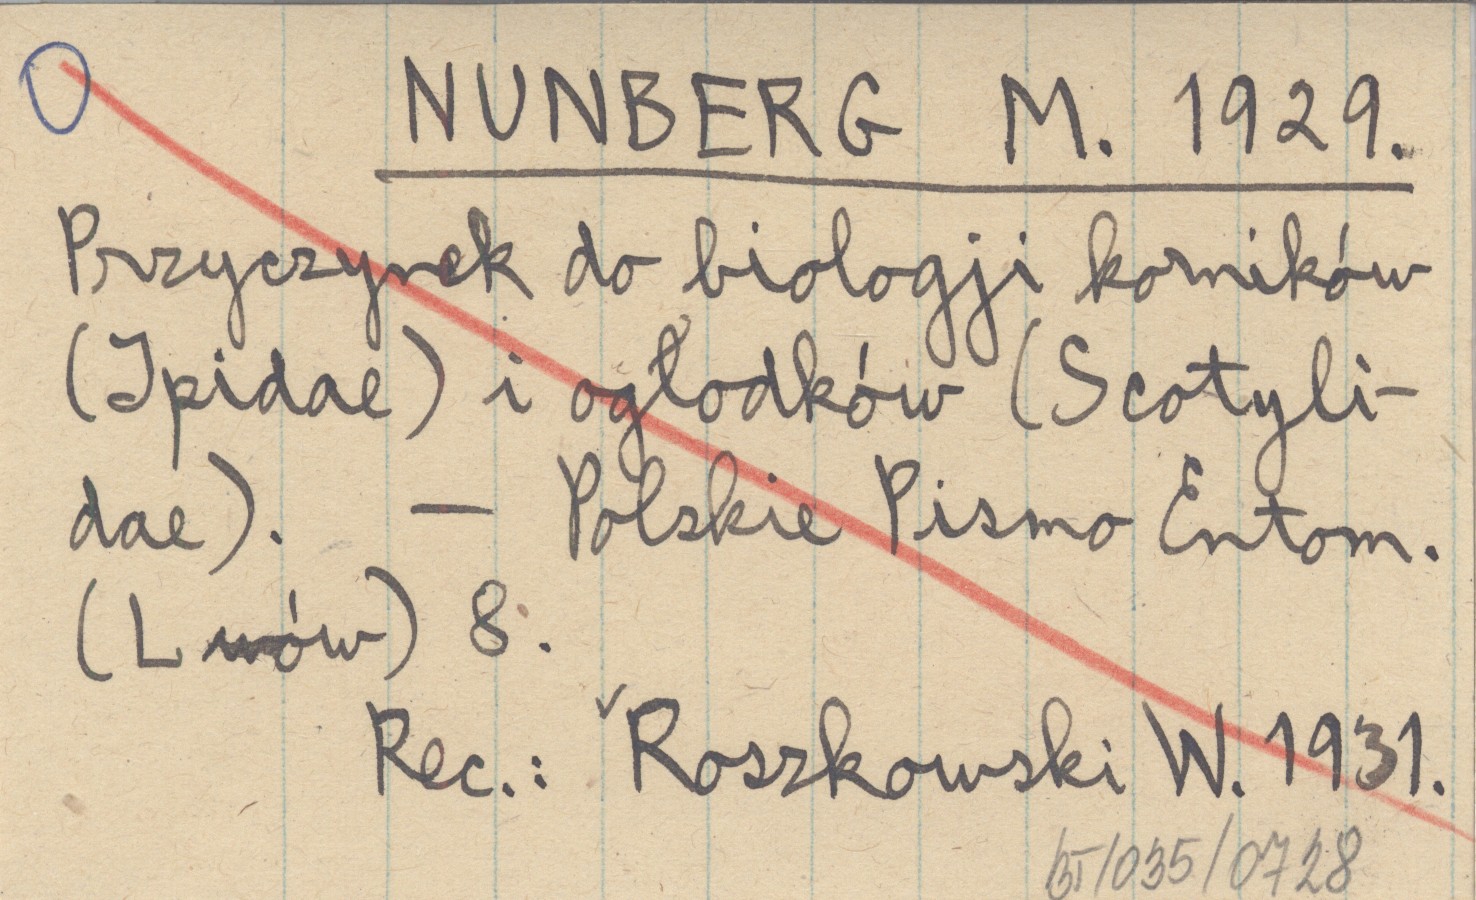 NUNBERG M. 1929.
Przyczynek do biologji korników
(Ipidae) i ogłodków (Scotyli-
dae). — Polskie Pismo Entom.
(Lwów) 8.
Rec.: ✓Roszkowski W. 1931.
/035/0728